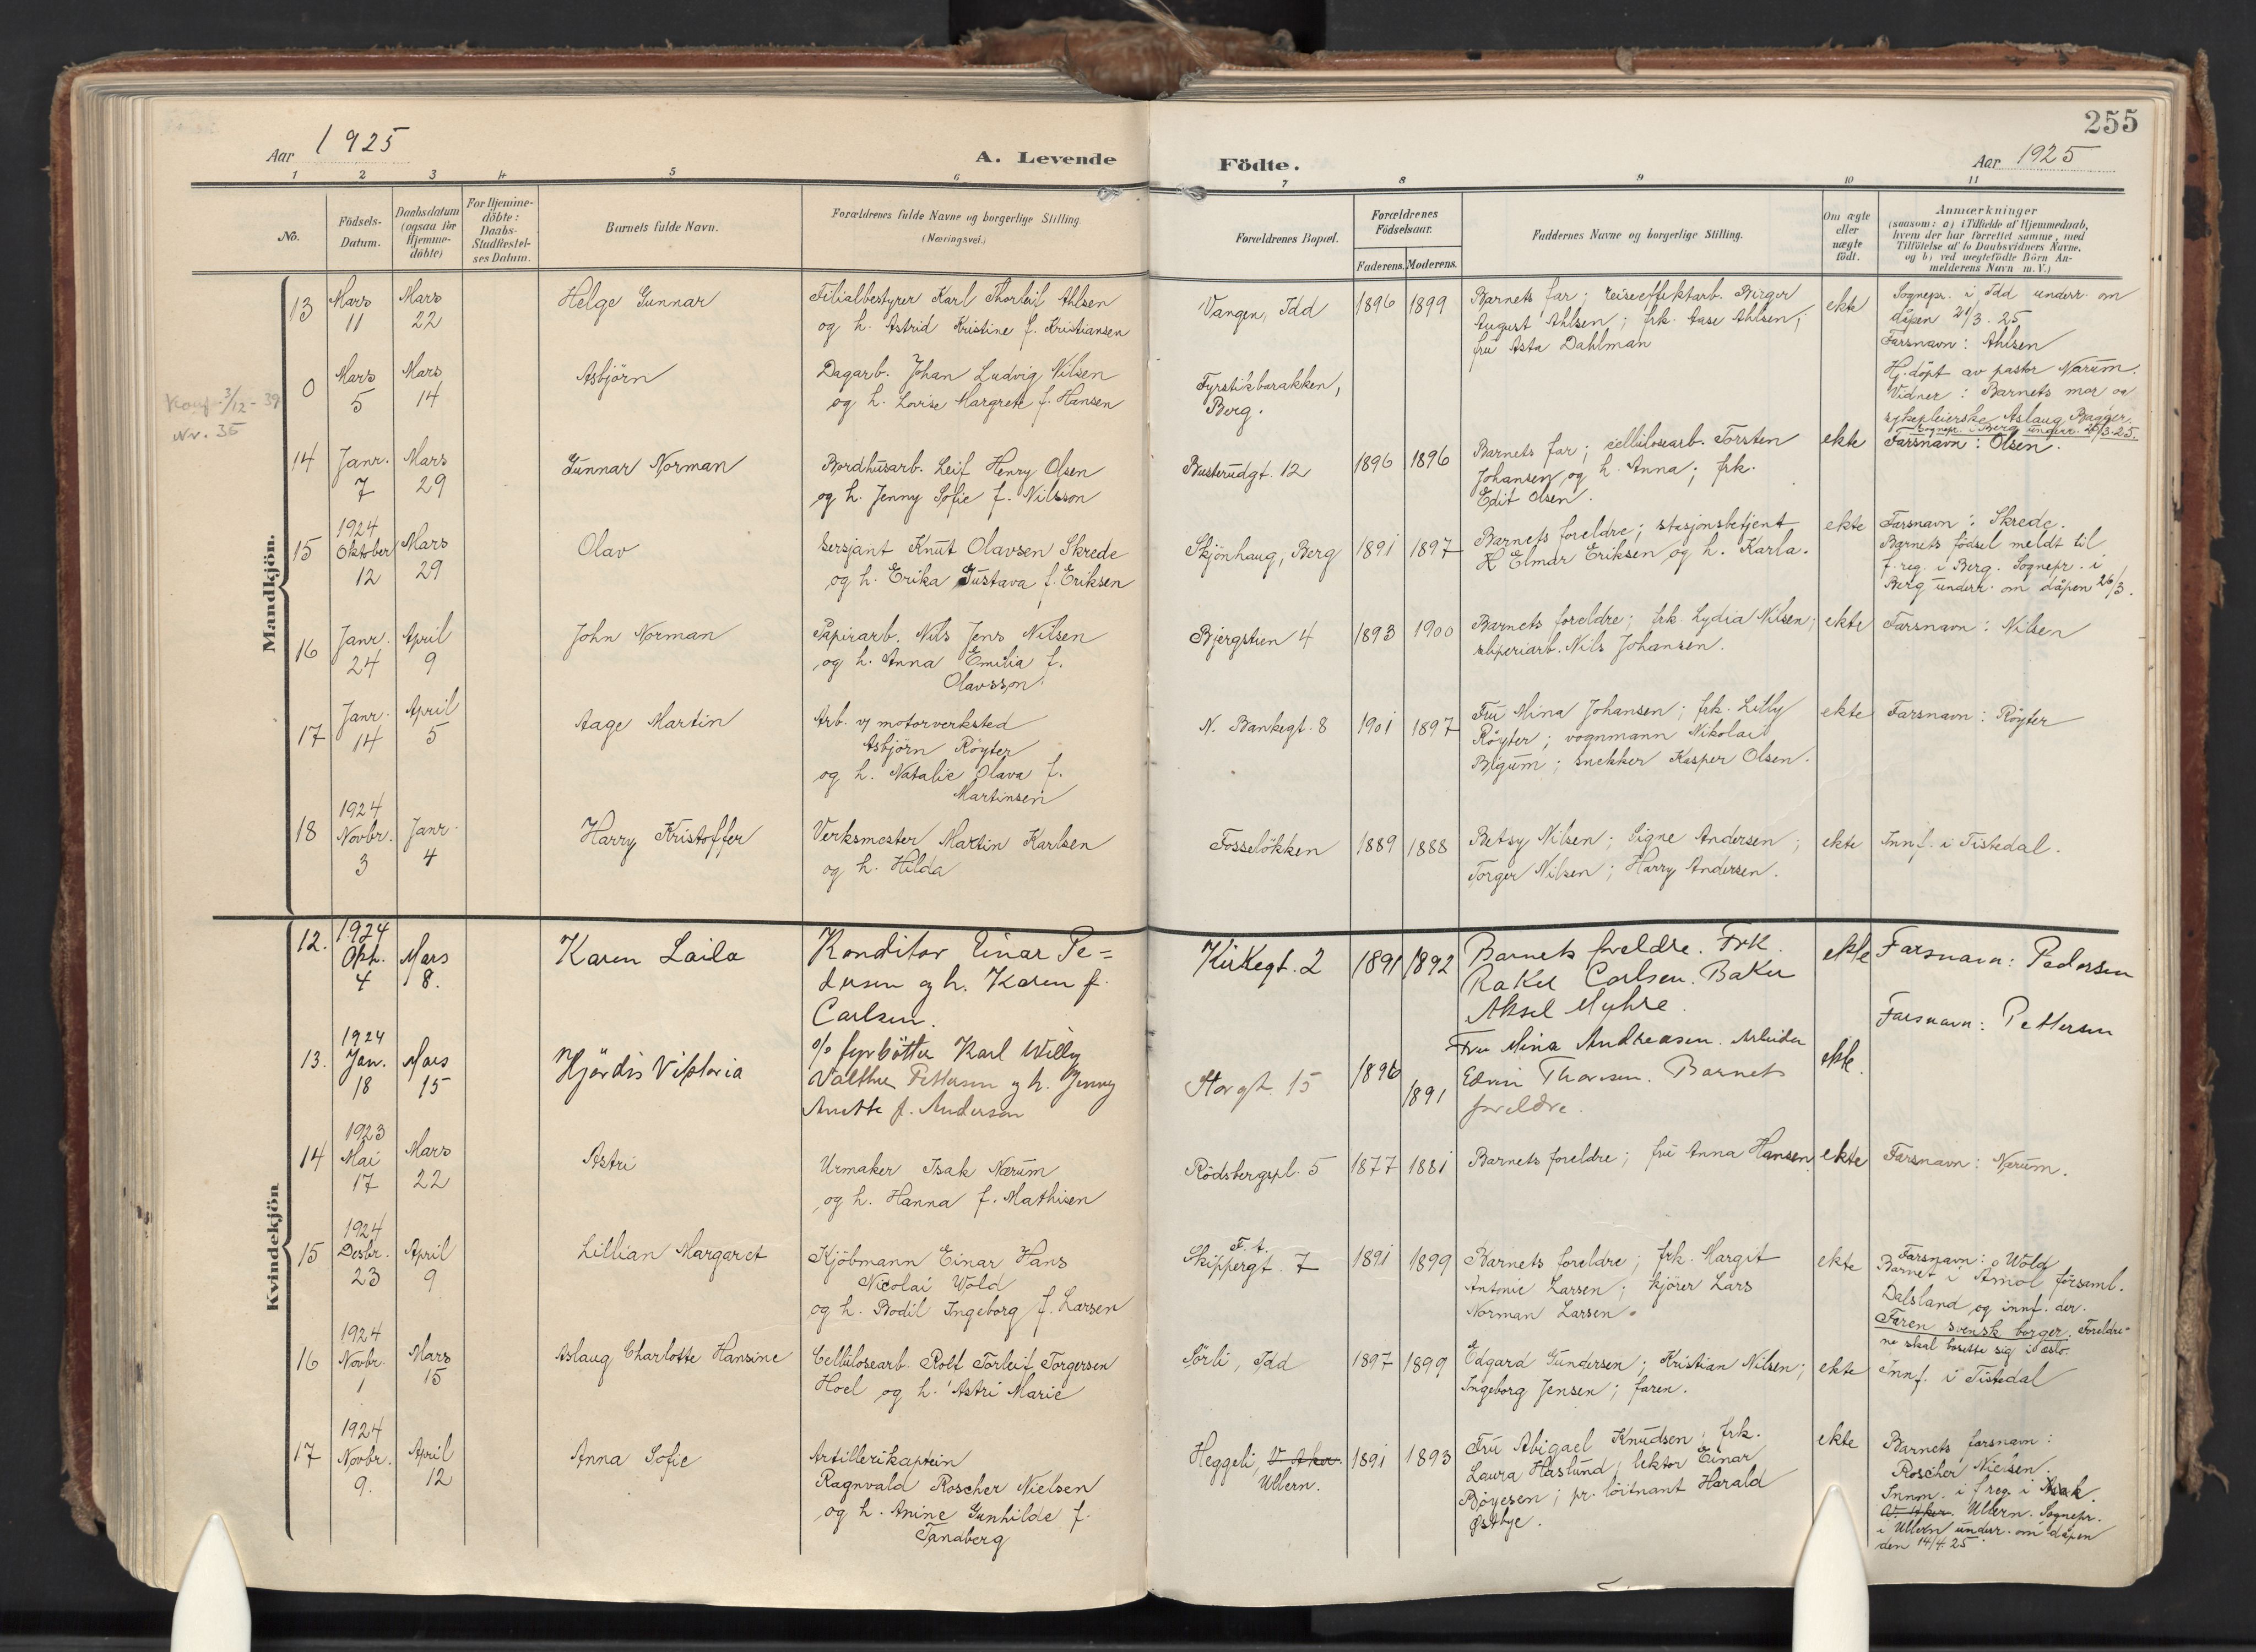 255
Aar 1925
A. Levende
Födte.
Aar 1925
1 2 3 4 5 6 7 8 9 10 11
No.
Födsels-
Datum.
Daabsdatum
(ogsaa för
Hjemme-
döbte)
For Hjemme-
döbte:
Daabs-
Stadfæstel-
ses Datum.
Barnets fulde Navn.
Forældrenes fulde Navne og borgerlige Stilling
(Næringsvei.)
Forældrenes Bopæl.
Forældrenes
Födselsaar.
Faderens. Moderens.
Faddernes Navne og borgerlige Stilling.
Om ægte
eller
uægte
födt.
Anmærkninger
(saasom: a) i Tilfælde af Hjemmedaab,
hvem der har forrettet samme, med
Tilföielse af to Daabsvidners Navne,
og b) ved uegtefödte Börn An-
melderens Navn m. V.)
Mandkjön.
13
Mars
11
Mars
22
Helge Gunnar
Filialbestyrer Karl Thorleif Ahlsen
og h. Astrid Kristine f. Kristiansen
Vangen, Idd
1896 1899
Barnets far; reiseeffektarb. Birger
August Ahlsen; frk. Aase Ahlsen;
fru Asta Dahlman
ekte
Sognepr. i Idd underr. om
dåpen 21/3. 25
Farsnavn: Ahlsen
Konf. 3/12 - 39
Nr. 35
0
Mars
5
Mars
14
Asbjörn
Dagarb. Johan Ludvig Nilsen
og h. Lovise Margrete f. Hansen
Fyrstikbarakken,
Berg.
Hj. döpt av pastor Narum.
Vidner: Barnets mor og
sykepleierske Aslaug Bagger
Sognepr. i Berg underr. 21/3. 25.
14
Janr.
7
Mars
29
Gunnar Norman
Bordhusarb. Leif Henry Olsen
og h. Jenny Sofie f. Nilsson
Busterudgt. 12
1896 1896
Barnets far; cellulosearb. Torsten
Johansen og h. Anna; frk.
Edit Olsen.
ekte
Farsnavn: Olsen.
15
1924
Oktober
12
Mars
29
Olav
Sersjant Knut Olavsen Skrede
og h. Erika Gustava f. Eriksen
Skjönhaug, Berg
1891 1897
Barnets foreldre; stasjonsbetjent
K Elmar Eriksen og h. Karla.
ekte
Farsnavn: Skrede.
Barnets födsel meldt til
f.reg. i Berg. Sognepr. i
Berg underr. om dåpen 26/3.
16
Janr.
24
April
9
John Norman
Papirarb. Nils Jens Nilsen
og h. Anna Emilia f.
Olavsson
Bjergstien 4
1893 1900
Barnets foreldre; frk. Lydia Nilsen;
sliperiarb. Nils Johansen.
ekte
Farsnavn: Nilsen
17
Janr.
14
April
5
Aage Martin
Arb. v/ motorverksted
Asbjörn Röyter
og h. Natalie Olava f.
Martinsen
N. Bankegt. 8
1901 1897
Fru Mina Johansen; frk. Lilly
Röyter; vognmann Nikolai
Bigum; snekker Kasper Olsen.
ekte
Farsnavn: Röyter
18
1924
Novbr.
3
Janr.
4
Harry Kristoffer
Verksmester Martin Karlsen
og h. Hilda
Fosselökken
1889 1888
Betsy Nilsen; Signe Andersen;
Torger Nilsen; Harry Andersen.
ekte
Innf. i Tistedal.
Kvindekjön
12.
1924
Okt.
4
Mars
8.
Karen Laila
Konditor Einar Pe=
dersen og h. Karen f.
Carlsen.
Kirkegt. 2
1891 1892
Barnets foreldre. Frk.
Rakel Carlsen. Baker
Aksel Myhre.
ekte
Farsnavn: Pedersen
13.
1924
Jan.
18
Mars
15
Hjördis Viktoria
% fyrböter Karl Willy
Walther Pettersen og h. Jenny
Anette f. Andersen
Storgt. 15
1896
1891
Fru Mina Andreasen. Arbeider
Edvin Thoresen. Barnets
foreldre.
ekte.
Farsnavn: Pettersen
14
1923
Mai
17
Mars
22
Astri
Urmaker Isak Narum
og h. Hanna f. Mathisen
Rödsbergspl. 5
1877 1881
Barnets foreldre; fru Anna Hansen
ekte
Farsnavn: Narum.
15
1924
Desbr.
23
April
9
Lillian Margaret
Kjöbmann Einar Hans
Nicolai Wold
og h. Bodil Ingeborg f. Larsen
F. t.
Skippergt. 7
1891 1899
Barnets foreldre; frk. Margit
Antonie Larsen; kjörer Lars
Norman Larsen.
ekte
Farsnavn: Wold
Barnet i Åmål församl.
Dalsland og innf. der.
Faren svensk borger. Foreldre-
ne skal bosette sig i Oslo.
16
1924
Novbr.
1
Mars
15
Aslaug Charlotte Hansine
Cellulosearb. Rolf Torleif Torgersen
Hoel og h. Astri Marie
Sörli, Idd
1897 1899
Edgard Gundersen; Kristian Nilsen;
Ingeborg Jensen; faren.
ekte
Innf. i Tistedal
17
1924
Novbr.
9.
April
12
Anna Sofie
Artillerikaptein
Ragnvald Roscher Nielsen
og h. Anine Gunhilde f.
Tandberg
Heggeli, V. Aker.
Ullern.
1891 1893
Fru Abigael Knudsen; frk.
Laura Haslund; lektor Einar
Böyesen; pr. löitnant Harald
Østbye.
ekte
Barnets farsnavn:
Roscher Nielsen.
Innm. i f.reg. i
V. Aker. Ullern. Sognepr.
i Ullern underr. om dåpen
den 14/4 25.